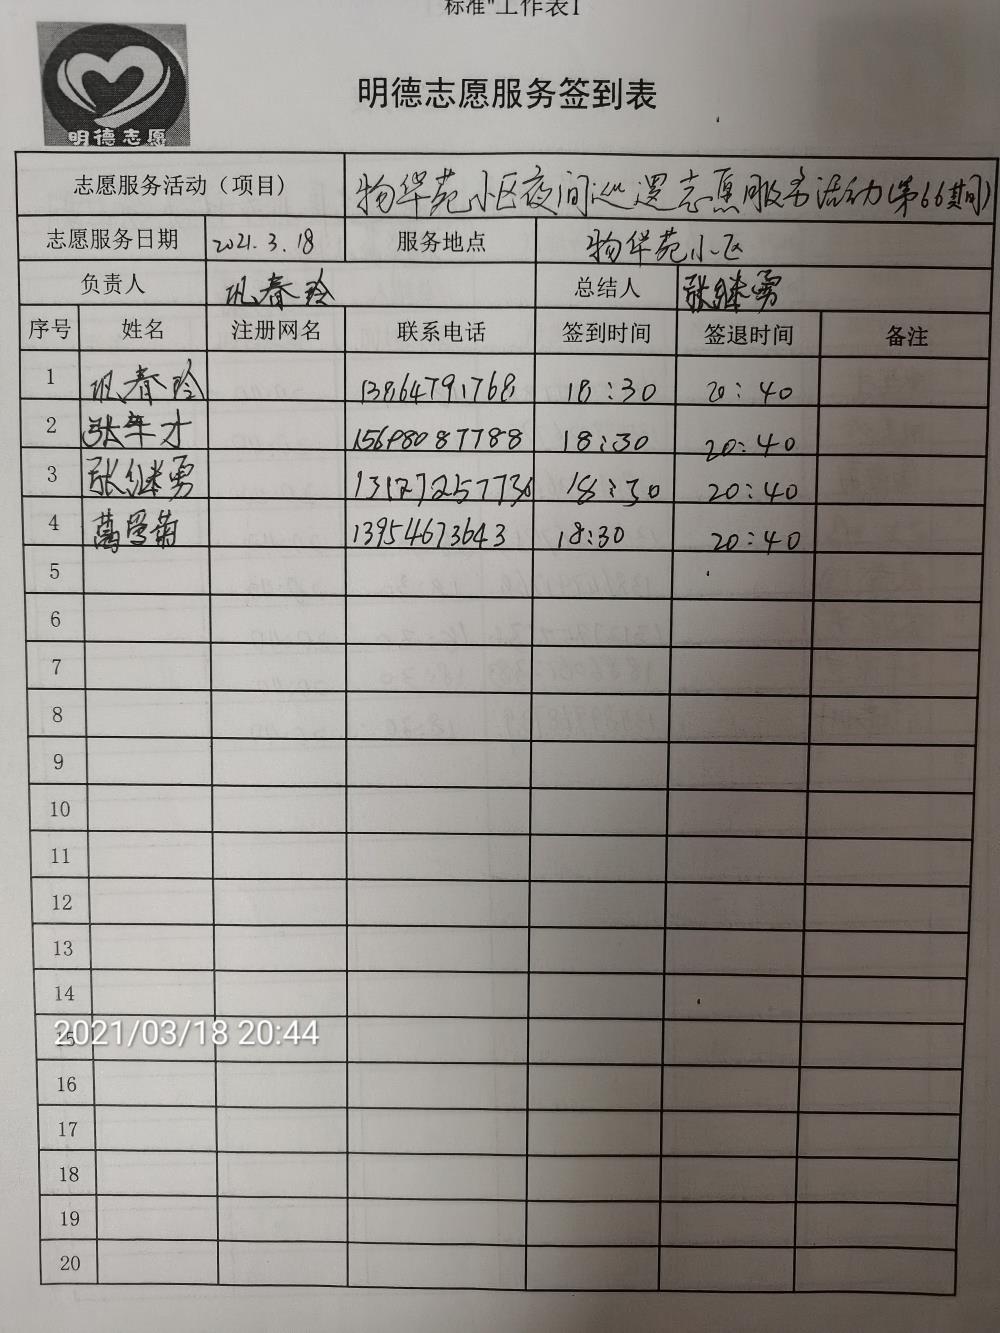 标准"工作表1
明德志愿
明德志愿服务签到表
志愿服务活动（项目） 物华苑小区夜间巡逻志愿服务活动(第66期)
志愿服务日期 2021.3.18 服务地点 物华苑小区
负责人 巩春玲 总结人 张继勇
序号 姓名 注册网名 联系电话 签到时间 签退时间 备注
1 巩春玲 13864791768 18:30 20:40
2 张年才 15698087788 18:30 20:40
3 张继勇 13127257730 18:30 20:40
4 13954673643 18:30 20:40
5
6
7
8
9
10
11
12
13
14
15
2021/03/18 20:44
16
17
18
19
20